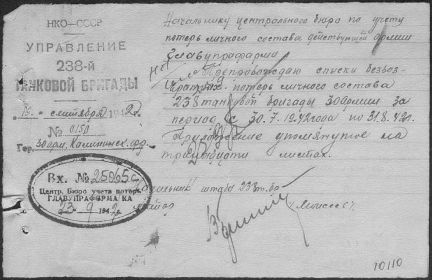 НКО-СССР
УПРАВЛЕНИЕ
238-й
ТАНКОВОЙ БРИГАДЫ
15 сентября 1942
№ 0150
Начальнику центрального бюро по учету
потерь личного состава действующей армии
Главупраформа
Препровождаю списки безвоз-
вратных потерь личного состава
238 танковой бригады 30 армии за
период с 30.7.1942 года по 31.8.42г.
Приложение упомянутое на
листах.
Начальник штаба 238 т.бр.
майор
Вх. № 25065с
Центр. Бюро учета потерь
ГЛАВУПРАФОРМА КА
23-9 1942